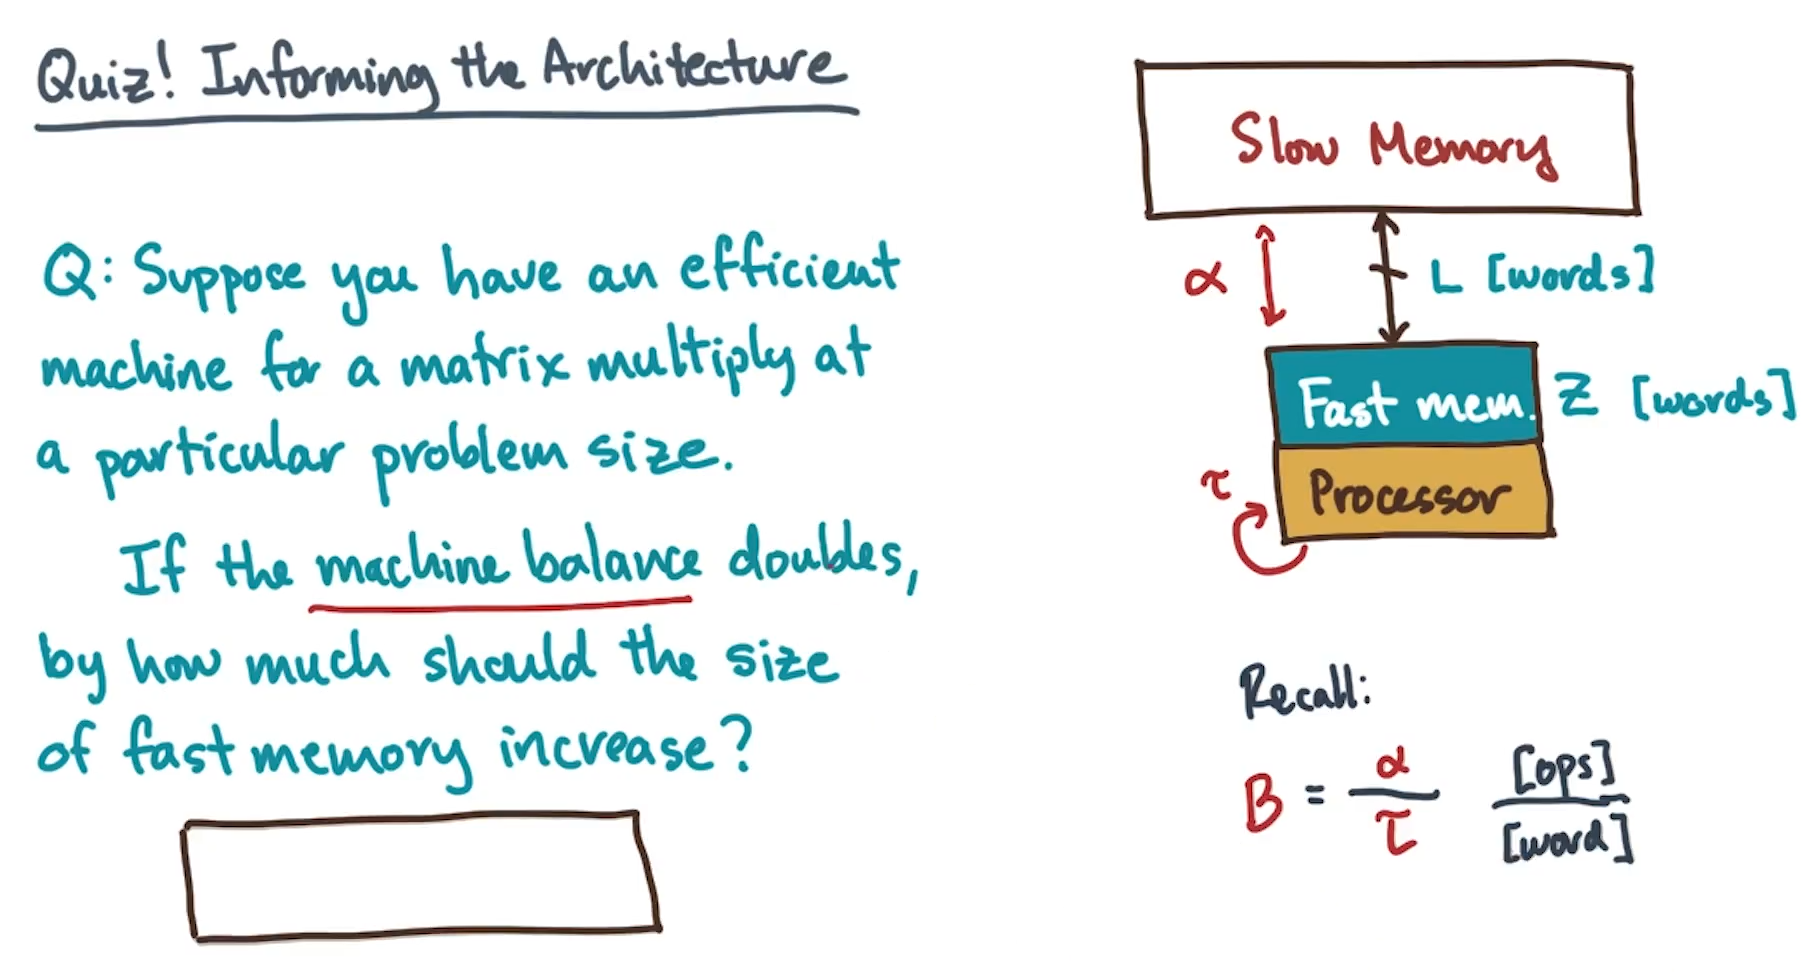 Quiz! Informing the Architecture
Q: Suppose you have an efficient
machine for a matrix multiply at
a particular problem size.
If the machine balance doubles,
by how much should the size
of fast memory increase?
Slow Memory
α
L [words]
Fast mem.
Z [words]
τ
Processor
Recall:
B = α / τ [ops] / [word]